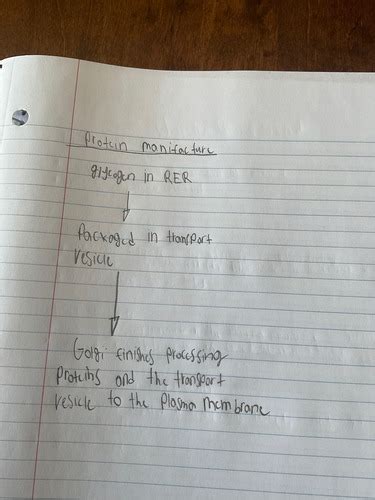 Protein manifacture
glycogen in RER
Packaged in transport
vesicle
Golgi finishes processing
proteins and the transport
vesicle to the plasma membrane